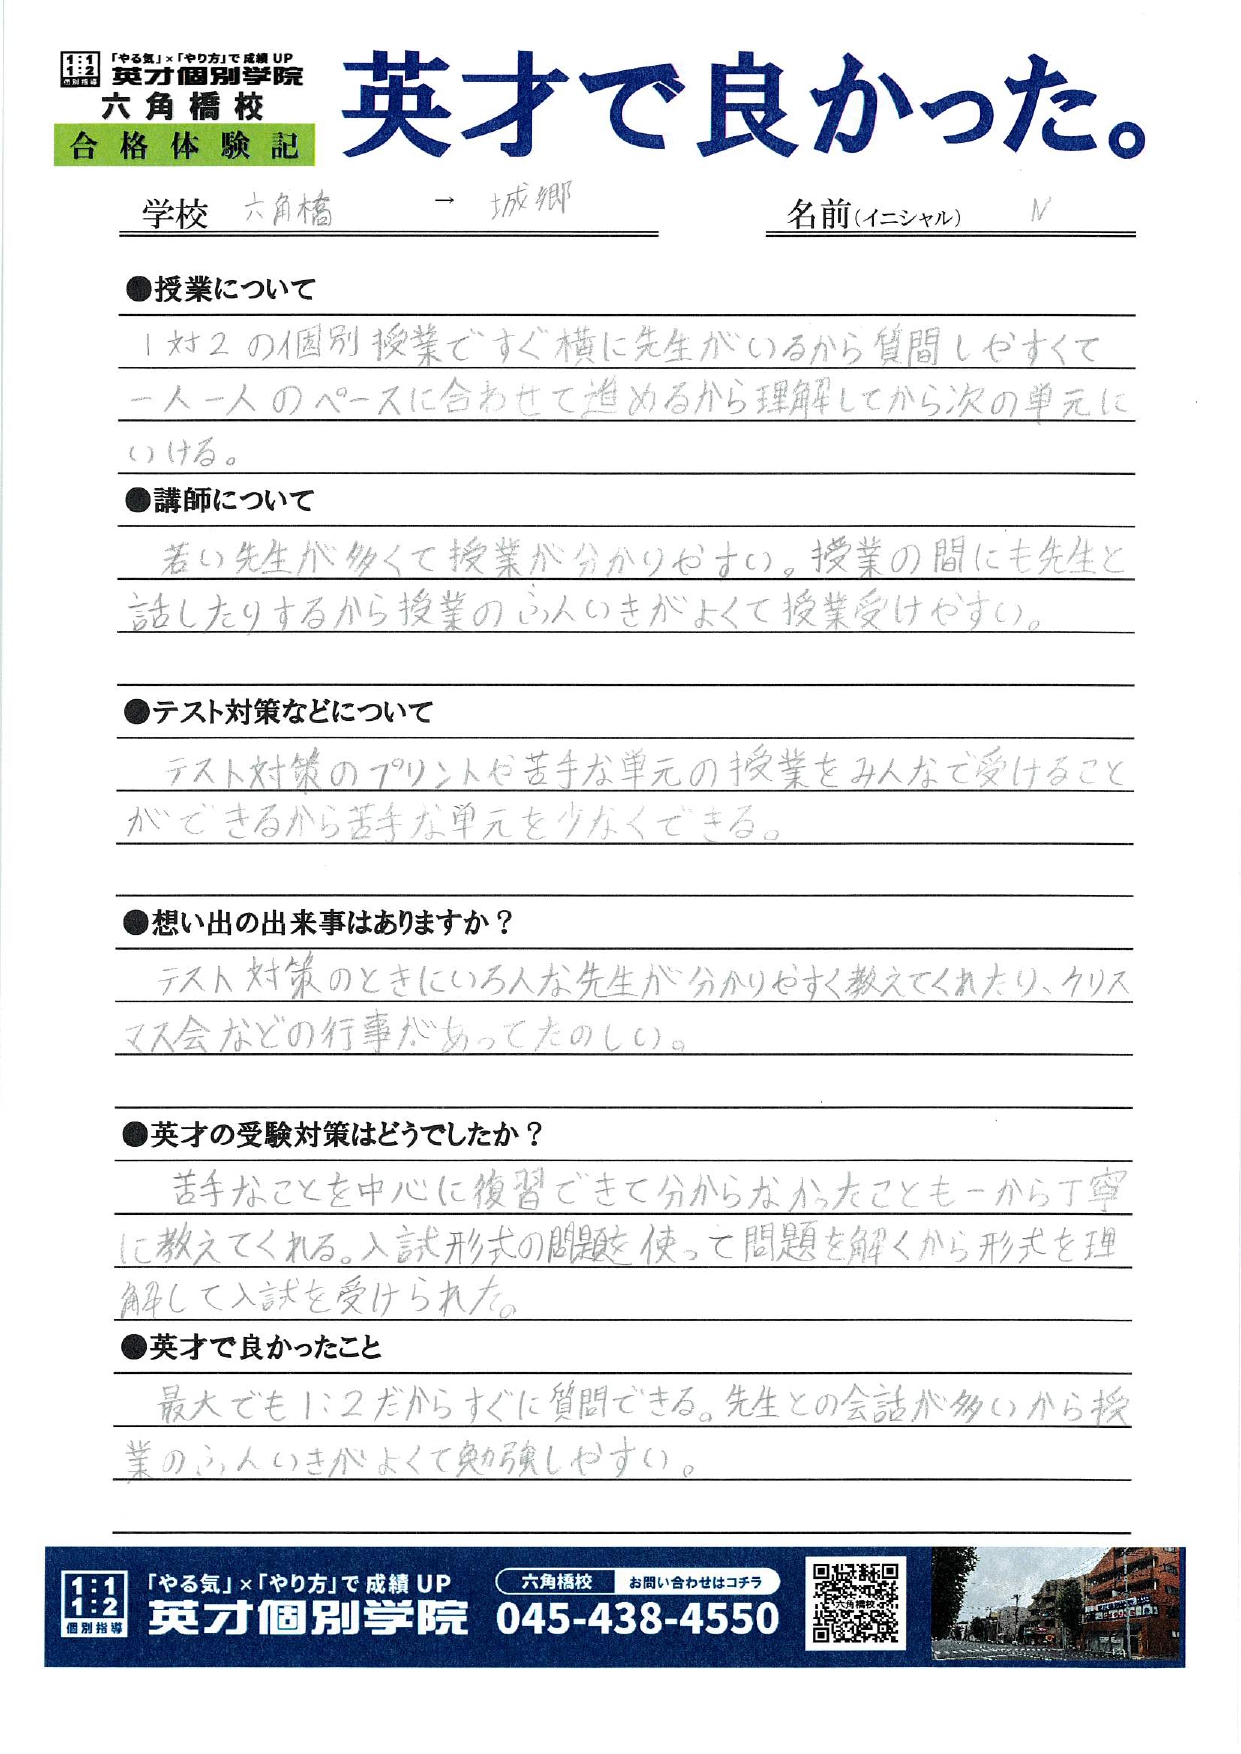 1:1
1:2
個別指導
「やる気」×「やり方」で成績UP
英才個別学院
六角橋校
合格体験記
英才で良かった。
学校 六角橋 → 城郷
名前(イニシャル) N
●授業について
1対2の個別授業ですぐ横に先生がいるから質問しやすくて
一人一人のペースに合わせて進めるから理解してから次の単元に
いける。
●講師について
若い先生が多くて授業が分かりやすい。授業の間にも先生と
話したりするから授業のふんいきがよくて授業受けやすい。
●テスト対策などについて
テスト対策のプリントや苦手な単元の授業をみんなで受けること
ができるから苦手な単元を少なくできる。
●想い出の出来事はありますか？
テスト対策のときにいろんな先生が分かりやすく教えてくれたり、クリス
マス会などの行事があってたのしい。
●英才の受験対策はどうでしたか？
苦手なことを中心に復習できて分からなかったことも一から丁寧
に教えてくれる。入試形式の問題を使って問題を解くから形式を理
解して入試を受けられた。
●英才で良かったこと
最大でも1:2だからすぐに質問できる。先生との会話が多いから授
業のふんいきがよくて勉強しやすい。
1:1
1:2
個別指導
「やる気」×「やり方」で成績UP
英才個別学院
六角橋校 お問い合わせはコチラ
045-438-4550
六角橋校